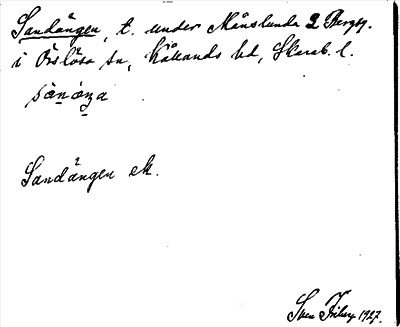 Sandängen, t. under Månslunda 2 Bergsg.
i Örslösa sn, Kållands hd, Skarab. l.
sànäŋa
Sandängen ek.
Sven Friberg 1927.